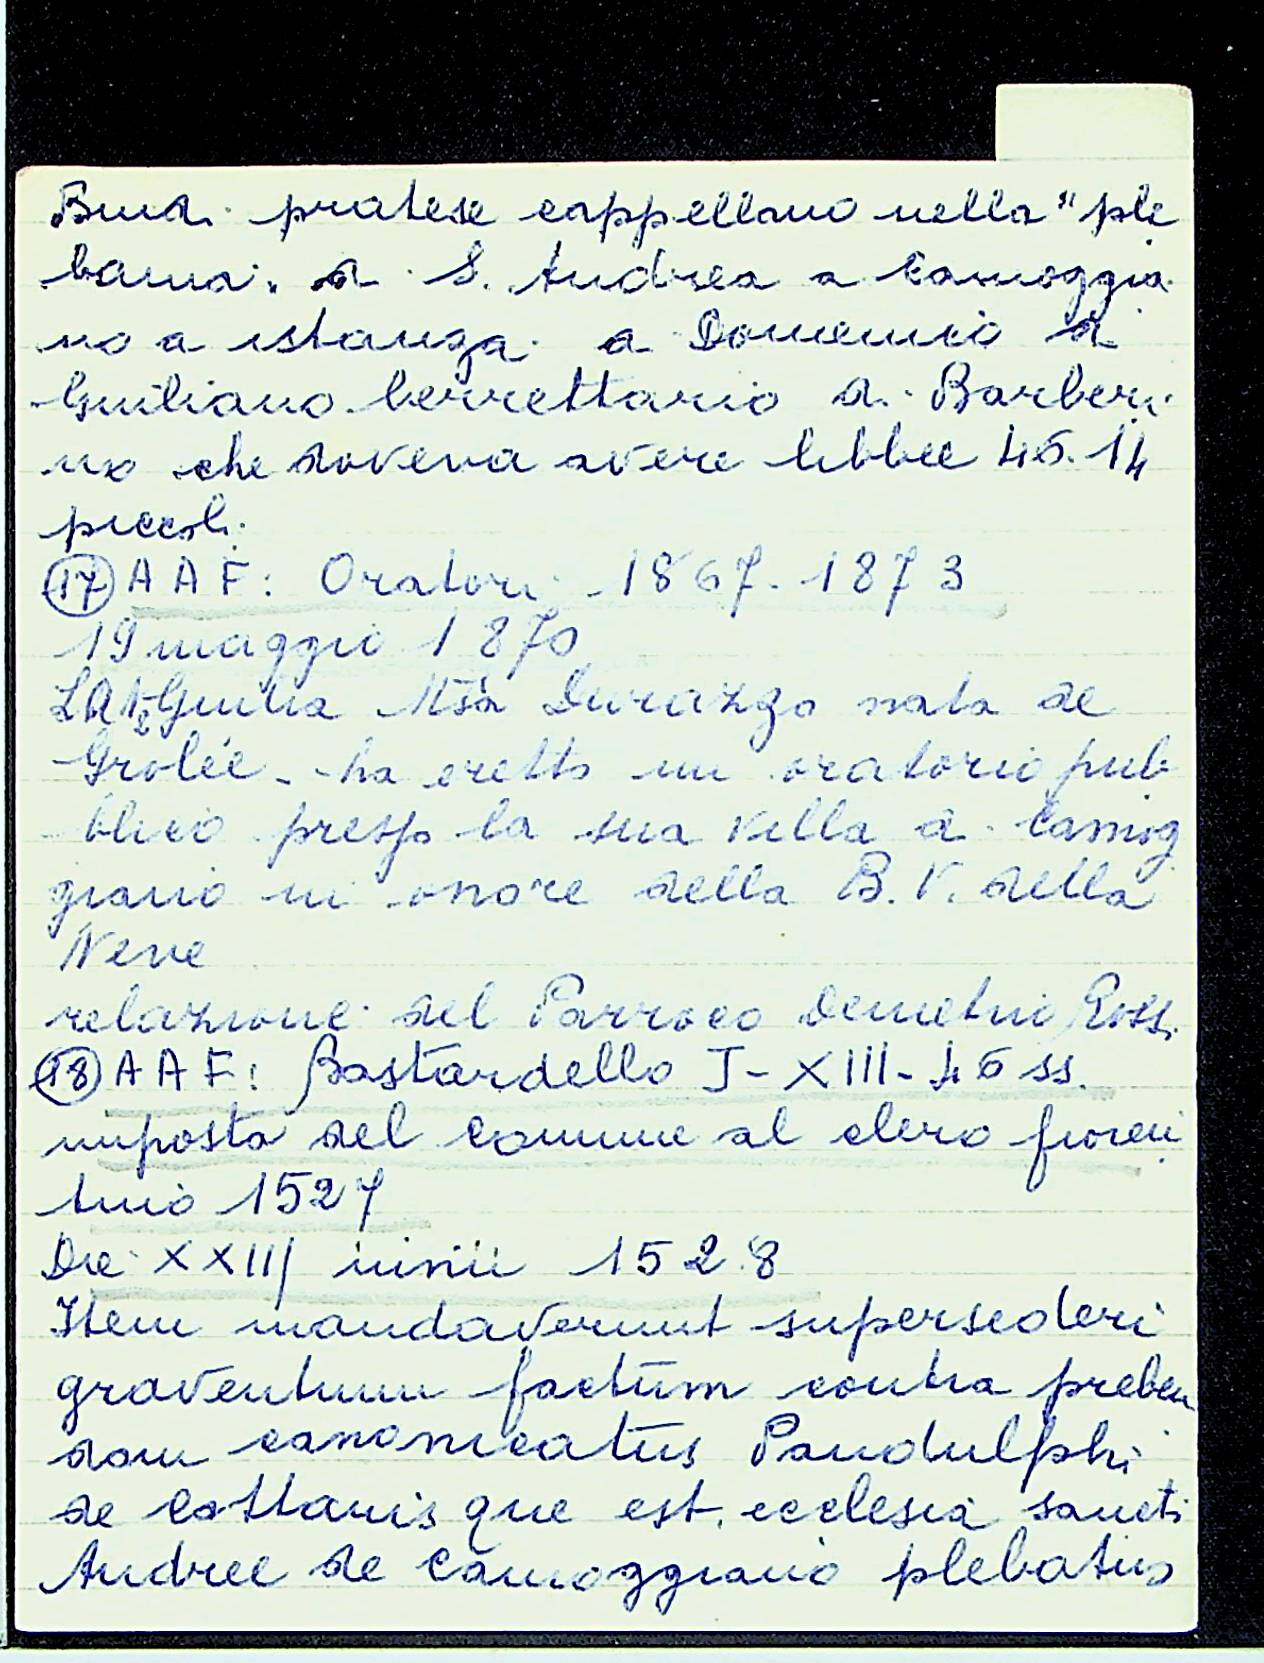 Buzi pratese cappellano nella "ple
bania" di S. Andrea a Camoggia
no a istanza di Domenico di
Giuliano berrettario di Barberi
no che doveva avere libbre 46.14
piccoli.
(17) AAF: Oratori 1867-1873
19 maggio 1870
Giulia M.sa Durazzo nata de
Grolée - ha eretto un oratorio pub
blico presso la sua villa di Camog
giano in onore della B.V. della
Neve
relazione del Parroco Demetrio Rossi
(18) AAF: Bastardello I-XIII-46 ss.
imposta del comune al clero fioren
tino 1527
Die XXIII iunii 1528
Item mandaverunt supersederi
graventum factum contra preben
dam canonicatus Pandulphi
de Cattanis que est ecclesia sancti
Andree de Camoggiano plebatus